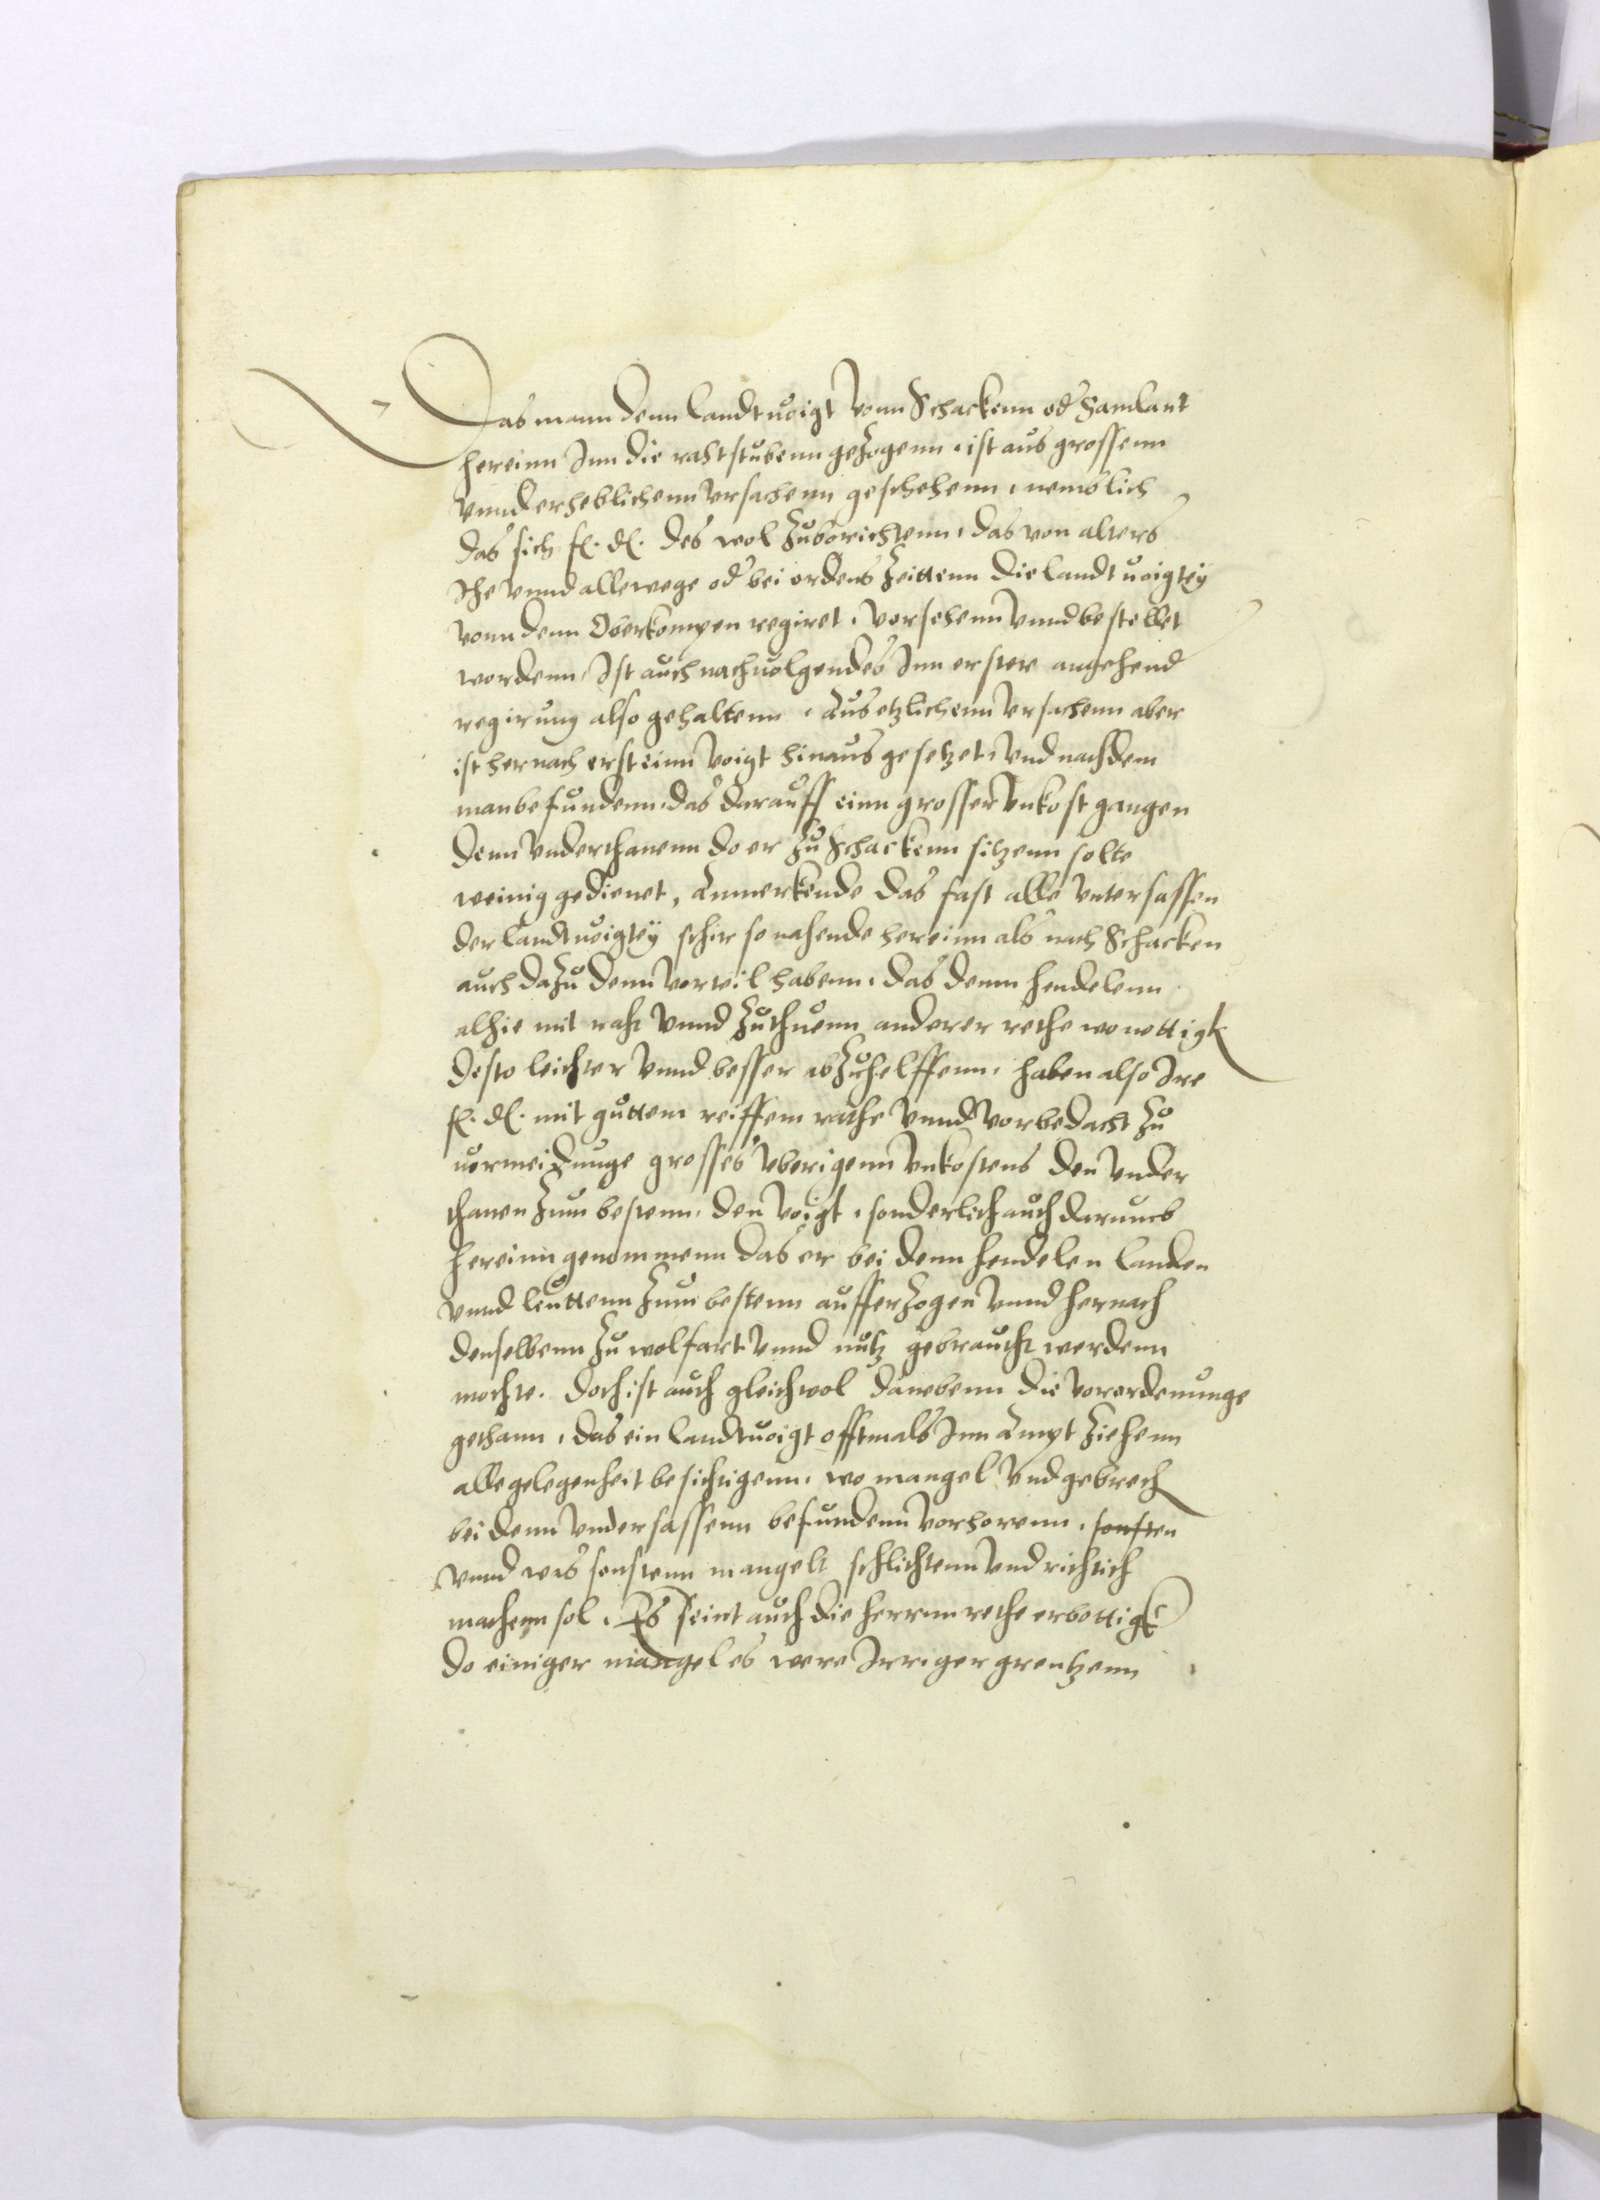 Das mann denn landtuoigt vonn Schackenn od Samlant
hereinn Inn die rahtstubenn gezogenn, ist aus grossenn
vnnd erheblichenn vrsachenn geschehenn, nemblich
das sich fl. dl. des wol zuborichtenn, das von alters
Ihe vnnd allewege od bei ordens zeittenn die landtuoigtey
vonn denn Oberkompen regiret, vorsehenn vnnd bestellet
wordenn, Ist auch nachuolgendes Inn erster angehend
regirung also gehaltenn, Aus etzlichenn vrsachenn aber
ist hernach erst einn voigt hinaus gesetzet, vnd nachdem
man befundenn, das darauff einn grosser vnkost gangen
denn vnderthanenn do er zu Schackenn sitzenn solte
weinig gedienet, Anmerkende das fast alle vntersassen
der landtuoigtey schir so nahende hereinn als nach Schacken
auch dazu denn vorteil habenn, das denn hendelenn
alhie mit raht vnnd zuthuenn anderer rethe wo nottigk
desto leichter vnnd besser abzuhelffenn, haben also Ire
fl. dl. mit guttem reiffem rathe vnnd vorbedacht zu
uermeidunge grosses vberigenn vnkostens den vnder
thanen zum bestenn, den voigt, sonderlich auch darumb
hereinn genommenn das er bei denn hendelen landen
vnnd leuttenn zum bestenn aufferzogen vnnd hernach
denselbenn zu wolfart vnnd nutz gebraucht werdenn
mochte. Doch ist auch gleichwol danebenn die vorordenunge
gethann, das ein landtuoigt offtmals Inn Ampt ziehenn
alle gelegenheit besichtigenn, wo mangel vnd gebrech
bei denn vndersassenn befundenn vorhorenn, sonsten
vnnd was sonstenn mangelt schlichtenn vnd richtich
machenn sol, Es seint auch die herrnn rethe erbottigk
do einiger mangel es were Irriger grentzenn